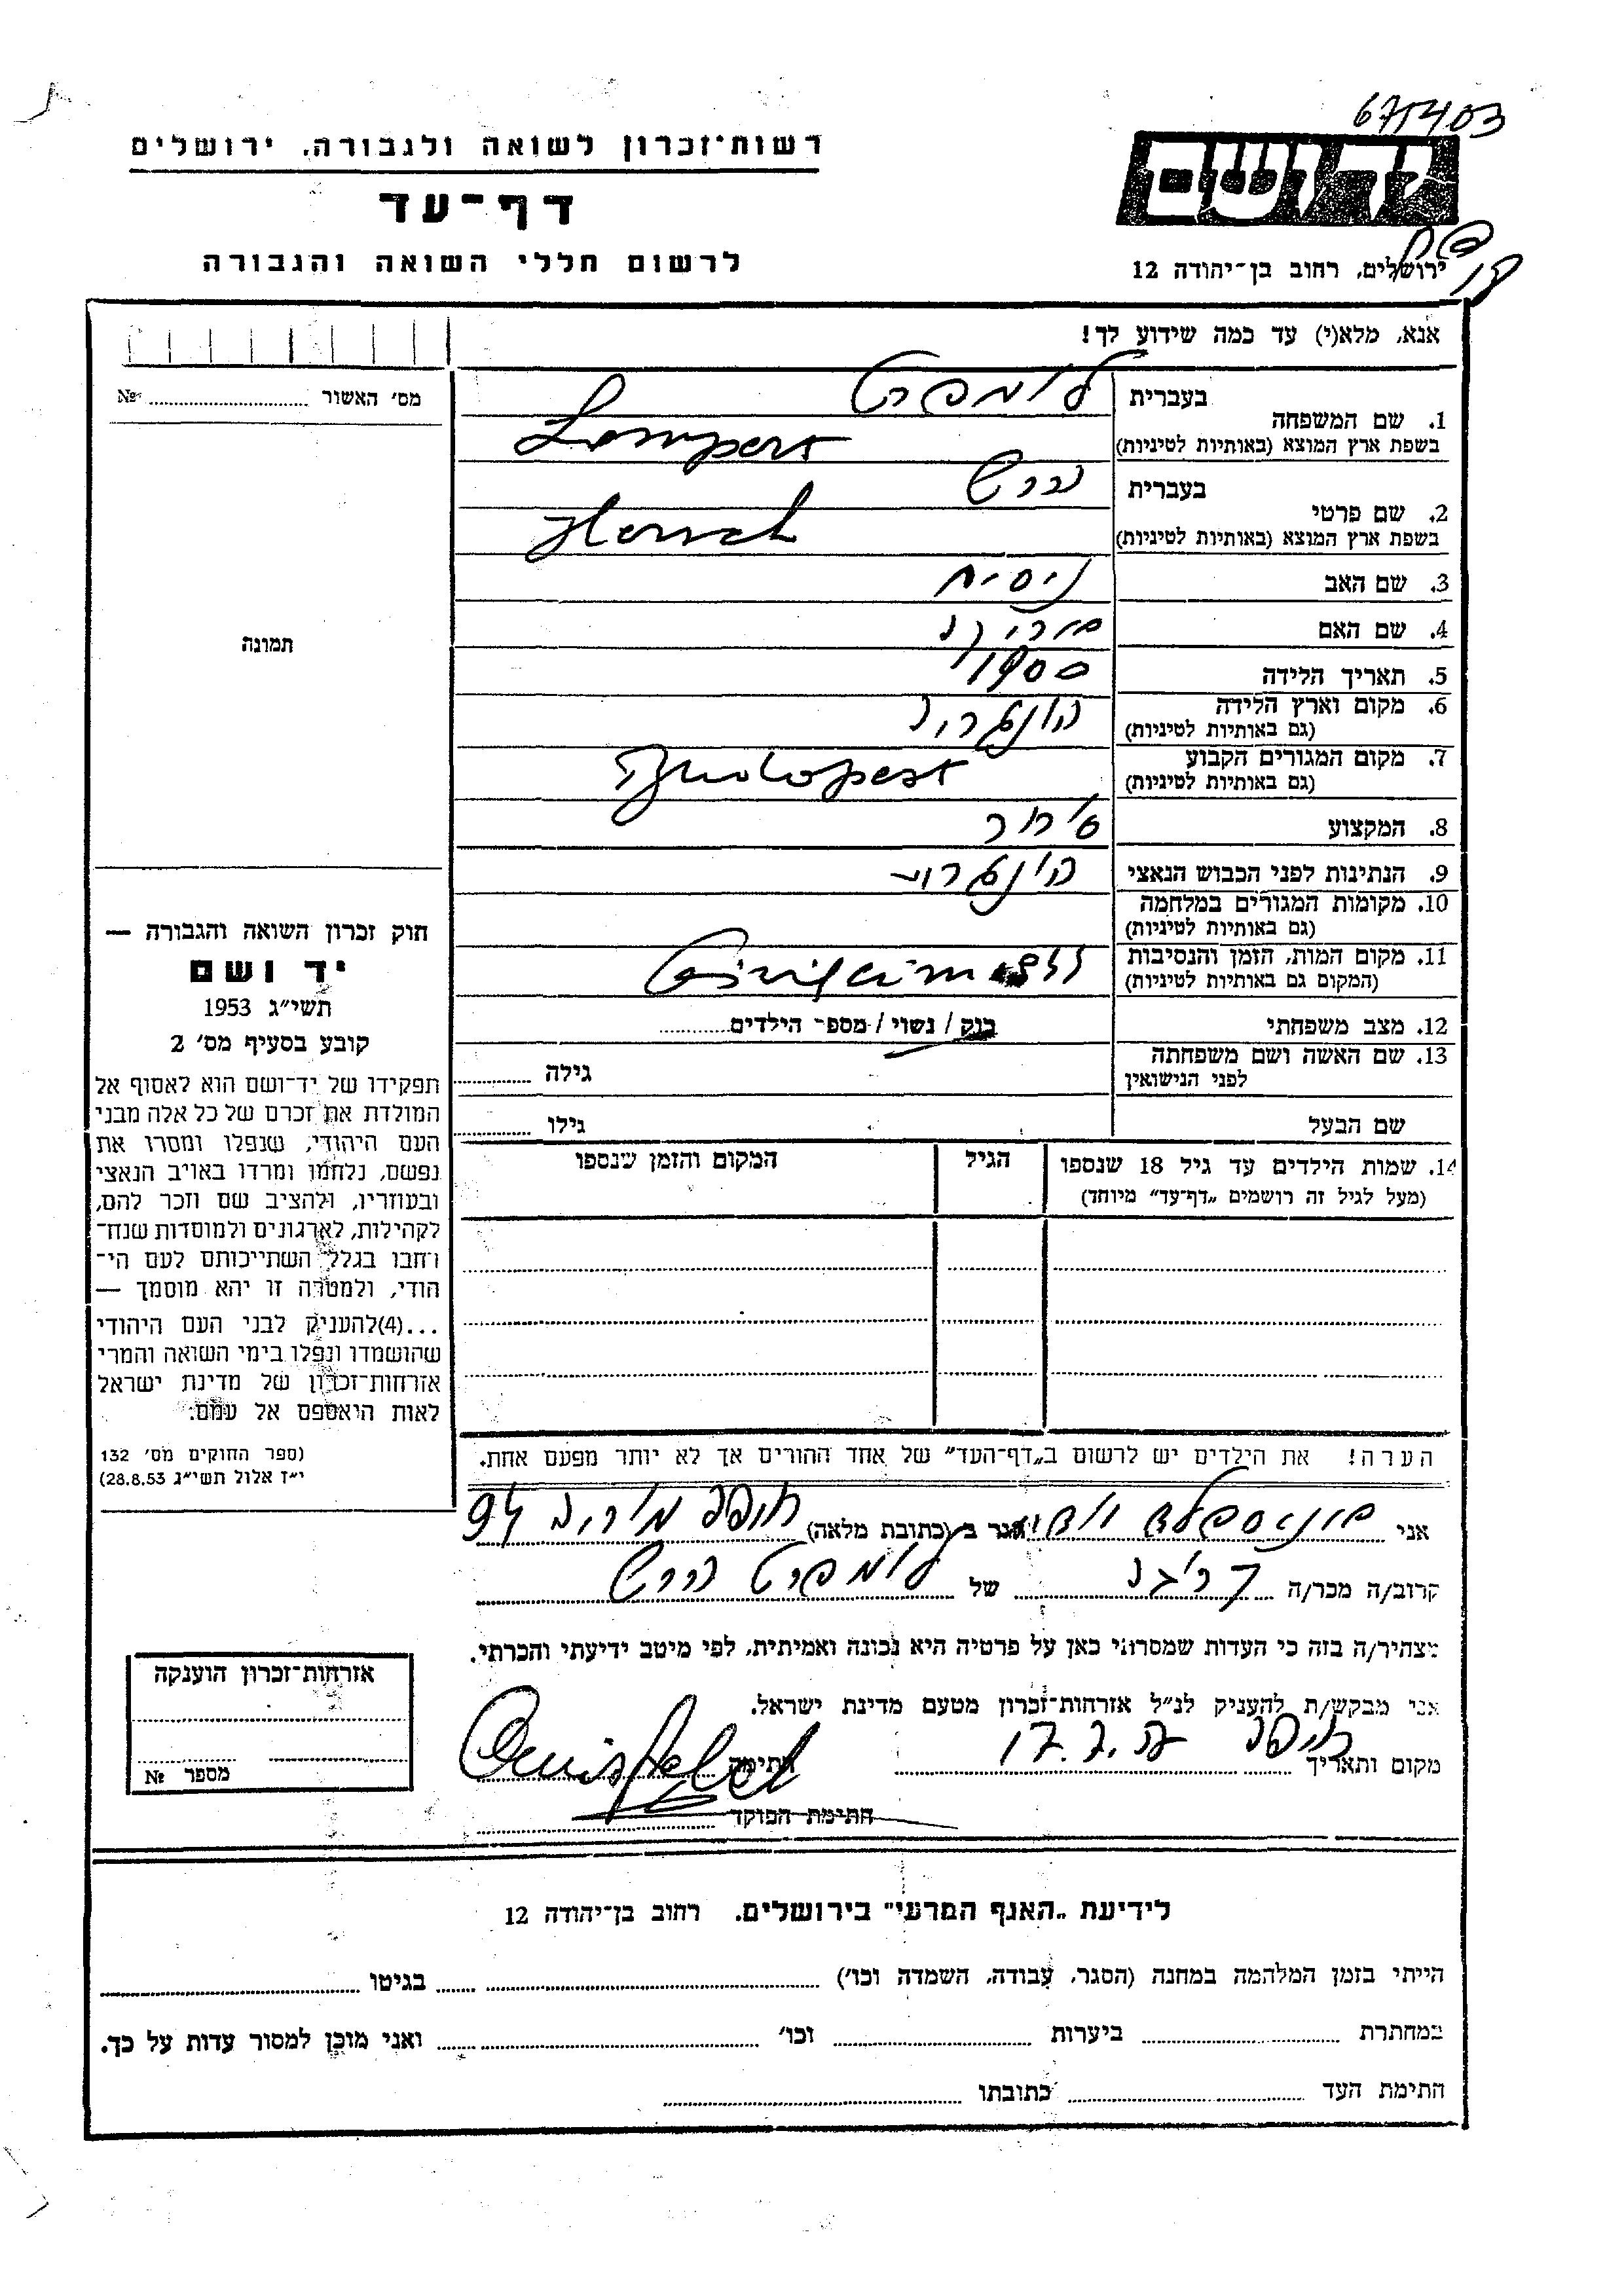 675403
רשות־זכרון לשואה ולגבורה. ירושלים
דף־עד
לרשום חללי השואה והגבורה
יד ושם
ירושלים, רחוב בן־יהודה 12
אנא, מלא(י) עד כמה שידוע לך!
בעברית
1. שם המשפחה
בשפת ארץ המוצא (באותיות לטיניות)
למפרט
Lempert
בעברית
2. שם פרטי
בשפת ארץ המוצא (באותיות לטיניות)
הרש
Hersch
3. שם האב
4. שם האם
5. תאריך הלידה 1900
6. מקום וארץ הלידה הונגריה
(גם באותיות לטיניות)
7. מקום המגורים הקבוע Budapest
(גם באותיות לטיניות)
8. המקצוע סוחר
9. הנתינות לפני הכבוש הנאצי הונגרית
10. מקומות המגורים במלחמה
(גם באותיות לטיניות)
11. מקום המות, הזמן והנסיבות
(המקום גם באותיות לטיניות)
12. מצב משפחתי רווק / נשוי / מספר הילדים
13. שם האשה ושם משפחתה גילה
לפני הנישואין
שם הבעל גילו
14. שמות הילדים עד גיל 18 שנספו הגיל המקום והזמן שנספו
(מעל לגיל זה רושמים „דף־עד” מיוחד)
הערה! את הילדים יש לרשום ב„דף־העד” של אחד ההורים אך לא יותר מפעם אחת.
אני הגר ב (כתובת מלאה) חיפה 94
קרוב/ה מכר/ה של למפרט הרש
מצהיר/ה בזה כי העדות שמסרתי כאן על פרטיה היא נכונה ואמיתית, לפי מיטב ידיעתי והכרתי.
אני מבקש/ת להעניק לנ״ל אזרחות־זכרון מטעם מדינת ישראל.
מקום ותאריך חיפה 17.7. חתימה
חתימת הפוקד
מס׳ האשור №
תמונה
חוק זכרון השואה והגבורה —
יד ושם
תשי״ג 1953
קובע בסעיף מס׳ 2
תפקידו של יד־ושם הוא לאסוף אל
המולדת את זכרם של כל אלה מבני
העם היהודי, שנפלו ומסרו את
נפשם, נלחמו ומרדו באויב הנאצי
ובעוזריו, ולהציב שם וזכר להם,
לקהילות, לארגונים ולמוסדות שנח־
רחבו בגלל השתייכותם לעם הי־
הודי, ולמטרה זו יהא מוסמך —
...(4)להעניק לבני העם היהודי
שהושמדו ונפלו בימי השואה והמרי
אזרחות־זכרון של מדינת ישראל
לאות היאספם אל עמם.
(ספר החוקים מס׳ 132
י״ז אלול תשי״ג 28.8.53)
אזרחות־זכרון הוענקה
מספר №
לידיעת „האגף המדעי” בירושלים. רחוב בן־יהודה 12
הייתי בזמן המלחמה במחנה (הסגר, עבודה, השמדה וכו׳) בגיטו
במחתרת ביערות וכו׳ ואני מוכן למסור עדות על כך.
חתימת העד כתובתו